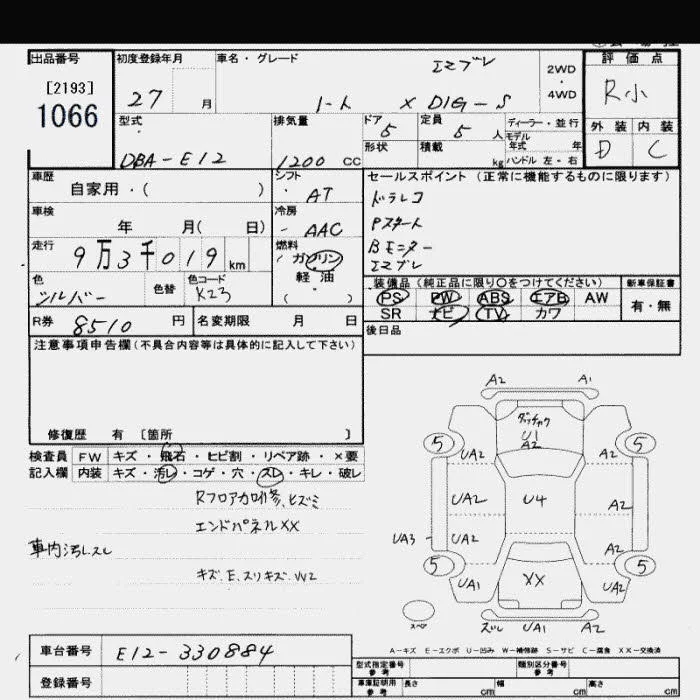 出品番号
[2193]
1066
初度登録年月
27 月
車名・グレード
エマブレ
ノート X DIG-S
2WD
・
4WD
評価点
R小
外装 内装
D C
型式
DBA-E12
排気量
1200 CC
ドア
5
定員
5 人
形状
積載
kg
ディーラー・並行
モデル
年式 年
ハンドル 左・右
車歴
自家用・( )
シフト
AT
セールスポイント (正常に機能するものに限ります)
ドラレコ
Pスタート
Bモニター
エマブレ
車検
年 月( 日)
冷房
AAC
走行
9万3千019 km
燃料
ガソリン
軽油
( )
色
シルバー
色替
色コード
K23
装備品 (純正品に限り〇をつけてください)
PS PW ABS エアB AW
SR ナビ TV カワ
新車保証書
有・無
R券
8510 円
名変期限 月 日
後日品
注意事項申告欄 (不具合内容等は具体的に記入して下さい)
修復歴 有 〔箇所 〕
検査員 FW キズ・飛石・ヒビ割・リペア跡・×要
記入欄 内装 キズ・汚レ・コゲ・穴・スレ・キレ・破レ
Rフロアカロ修、ヒズミ
エンドパネルXX
車内汚レスレ
キズ、E、スリキズ、W2
A2 A1
U1
A2
5 5
UA2 A2
UA2 U4 A2
UA3 UA2 A2
5 5
UA1 XX UA2
スペア
ズレ UA1 A2
A-キズ E-エクボ U-凹み W-補修跡 S-サビ C-腐食 XX-交換済
車台番号
E12-330884
登録番号
型式指定番号
参考
類別区分番号
参考
車庫証明用
参考
長さ cm 幅 cm 高さ cm